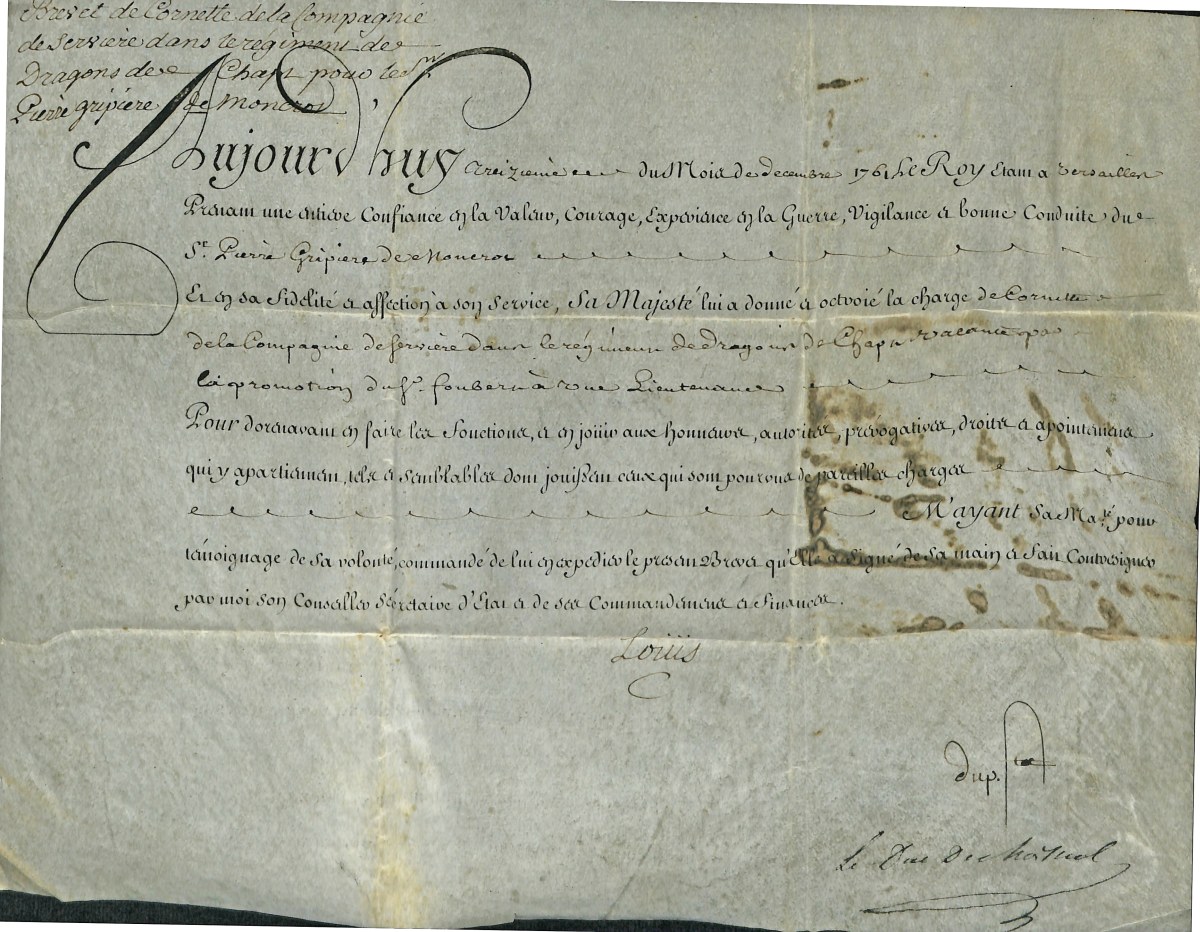 Brevet de Cornette de la Compagnie
de Serviere dans le régiment de
Dragons de Chapt pour le Sr.
Pierre gripiere de Moncroc
Aujourd'huy treizieme du Mois de decembre 1761 Le Roy Etant a Versailles
Prenant une entiere Confiance en la Valeur, Courage, Expérience en la Guerre, Vigilance et bonne Conduite du
Sr. Pierre Gripiere de Moncroc
Et en sa fidélité et affection à son service, Sa Majesté lui a donné et octroié la charge de Cornette
de la Compagnie de Serviere dans le régiment de dragons de Chapt vacante par
la promotion du Sr. foubert à une Lieutenance
Pour dorenavant en faire les fonctions, et en jouir aux honneurs, autorités, prérogatives, droits et apointemens
qui y apartiennent, tels et semblables dont jouissent ceux qui sont pourvus de pareilles charges
M'ayant Sa Ma.té pour
témoignage de sa volonté, commandé de lui en expedier le present Brevet qu'Elle a signé de sa main et fait Contresigner
par moi son Conseiller Sécretaire d'Etat et de ses Commandemens et finances.
Louis
dup.
Le Duc De choiseul